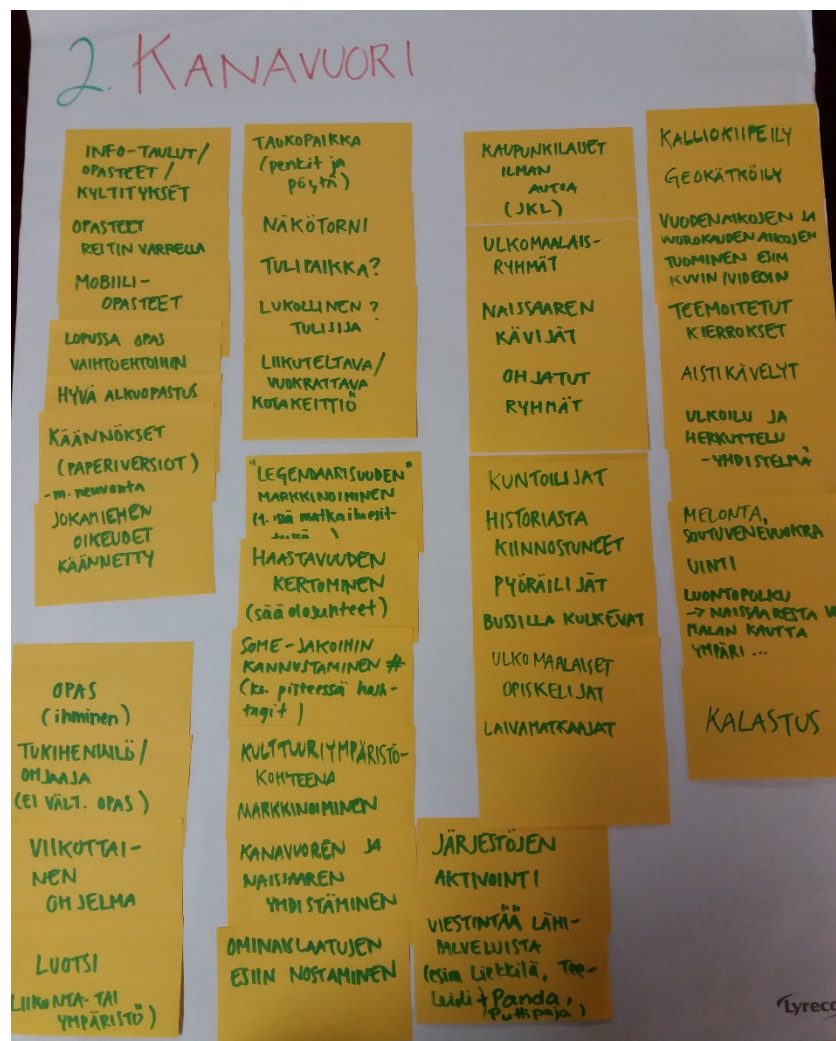 2. KANAVUORI
INFO-TAULUT/
OPASTEET/
KYLTITYKSET
OPASTEET
REITIN VARRELLA
MOBIILI-
OPASTEET
LOPUSSA OPAS
VAIHTOEHTOIHIN
HYVÄ ALKUOPASTUS
KÄÄNNÖKSET
(PAPERIVERSIOT)
-m. neuvonta
JOKAMIEHEN
OIKEUDET
KÄÄNNETTY
OPAS
(ihminen)
TUKIHENKILÖ/
OHJAAJA
(EI VÄLT. OPAS)
VIIKOTTAI-
NEN
OHJELMA
LUOTSI
LIIKUNTA- TAI
YMPÄRISTÖ)
TAUKOPAIKKA
(penkit ja
pöytä)
NÄKÖTORNI
TULIPAIKKA?
LUKOLLINEN?
TULISIJA
LIIKUTELTAVA/
VUOKRATTAVA
KOTAKEITTIÖ
"LEGENDAARISUUDEN"
MARKKINOIMINEN
HAASTAVUUDEN
KERTOMINEN
(sääolosuhteet)
SOME-JAKOIHIN
KANNUSTAMINEN #
(ko. pisteessä hash-
tagit)
KULTTUURIYMPÄRISTÖ-
KOHTEENA
MARKKINOIMINEN
KANAVUOREN JA
NAISSAAREN
YHDISTÄMINEN
OMINAISLAATUJEN
ESIIN NOSTAMINEN
KAUPUNKILAISET
ILMAN
AUTOA
(JKL)
ULKOMAALAIS-
RYHMÄT
NAISSAAREN
KÄVIJÄT
OHJATUT
RYHMÄT
KUNTOILIJAT
HISTORIASTA
KIINNOSTUNEET
PYÖRÄILIJÄT
BUSSILLA KULKEVAT
ULKOMAALAISET
OPISKELIJAT
LAIVAMATKAAJAT
JÄRJESTÖJEN
AKTIVOINTI
VIESTINTÄÄ LÄHI-
PALVELUISTA
(esim Liekkilä, Tee-
Leidi + Panda,
Puttipaja)
KALLIOKIIPEILY
GEOKÄTKÖILY
VUODENAIKOJEN JA
VUOROKAUDENAIKOJEN
TUOMINEN ESIM
KUVIN/VIDEOIN
TEEMOITETUT
KIERROKSET
AISTIKÄVELYT
ULKOILU JA
HERKUTTELU
-YHDISTELMÄ
MELONTA,
SOUTUVENEVUOKRA
UINTI
LUONTOPOLKU
→ NAISSAARESTA
MALAN KAUTTA
YMPÄRI ...
KALASTUS
Lyreco